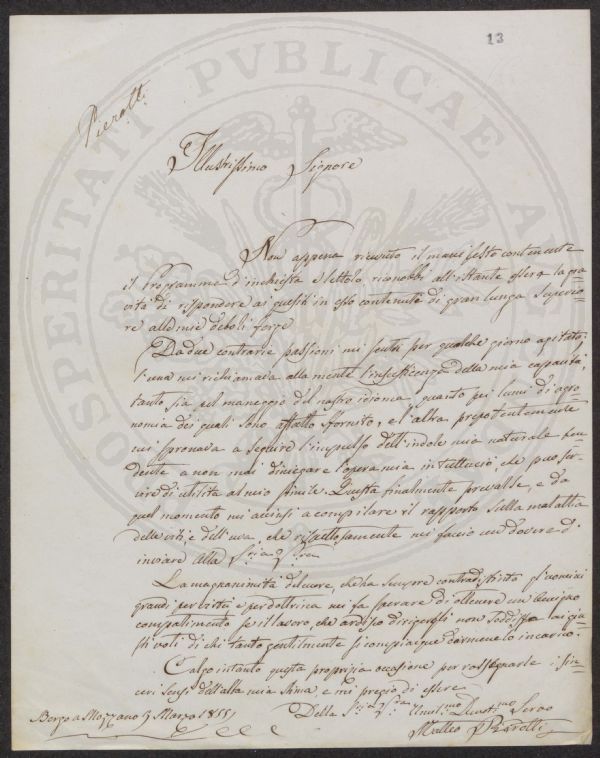 13
Pierotti
Illustrissimo Signore
Non appena ricevuto il manifesto contenente
il Programma d'inchiesta e lettolo, riconobbi all'istante essere la gra-
vità di rispondere ai quesiti in esso contenuti di gran lunga superio-
re alle mie deboli forze
Da due contrarie passioni mi sentii per qualche giorno agitato;
l'una mi richiamava alla mente l'insufficenza della mia capacità,
tanto sia pel maneggio del nostro idioma, quanto pei lumi di agro-
nomia dei quali sono affatto sfornito, e l'altra prepotentemente
mi spronava a seguire l'impulso dell'indole mia naturale ten-
dente a non mai diniegare l'opera mia in tuttociò, che può ser-
vire di utilità al mio simile. Questa finalmente prevalse, e da
quel momento mi accinsi a compilare il rapporto sulla malattia
delle viti, e dell'uva, che rispettosamente mi faccio un dovere d'
inviare alla S.ria V.stra
La magnanimità del cuore, che ha sempre contradistinto gl'uomini
grandi per virtù e per dottrina mi fa sperare di ottenere un benigno
compatimento se il lavoro, che ardisco dirigerli non soddisfa ai giu-
sti voti di chi tanto gentilmente si compiacque darmene lo incarico.
Colgo intanto questa propizia occasione per rassegnarle i sin-
ceri sensi dell'alta mia stima, e mi pregio di essere
Della S.ria V.stra Umilmo Devotmo Servo
Borgo a Mozzano 5 Marzo 1855 Matteo Pierotti
PROSPERITATI PVBLICAE